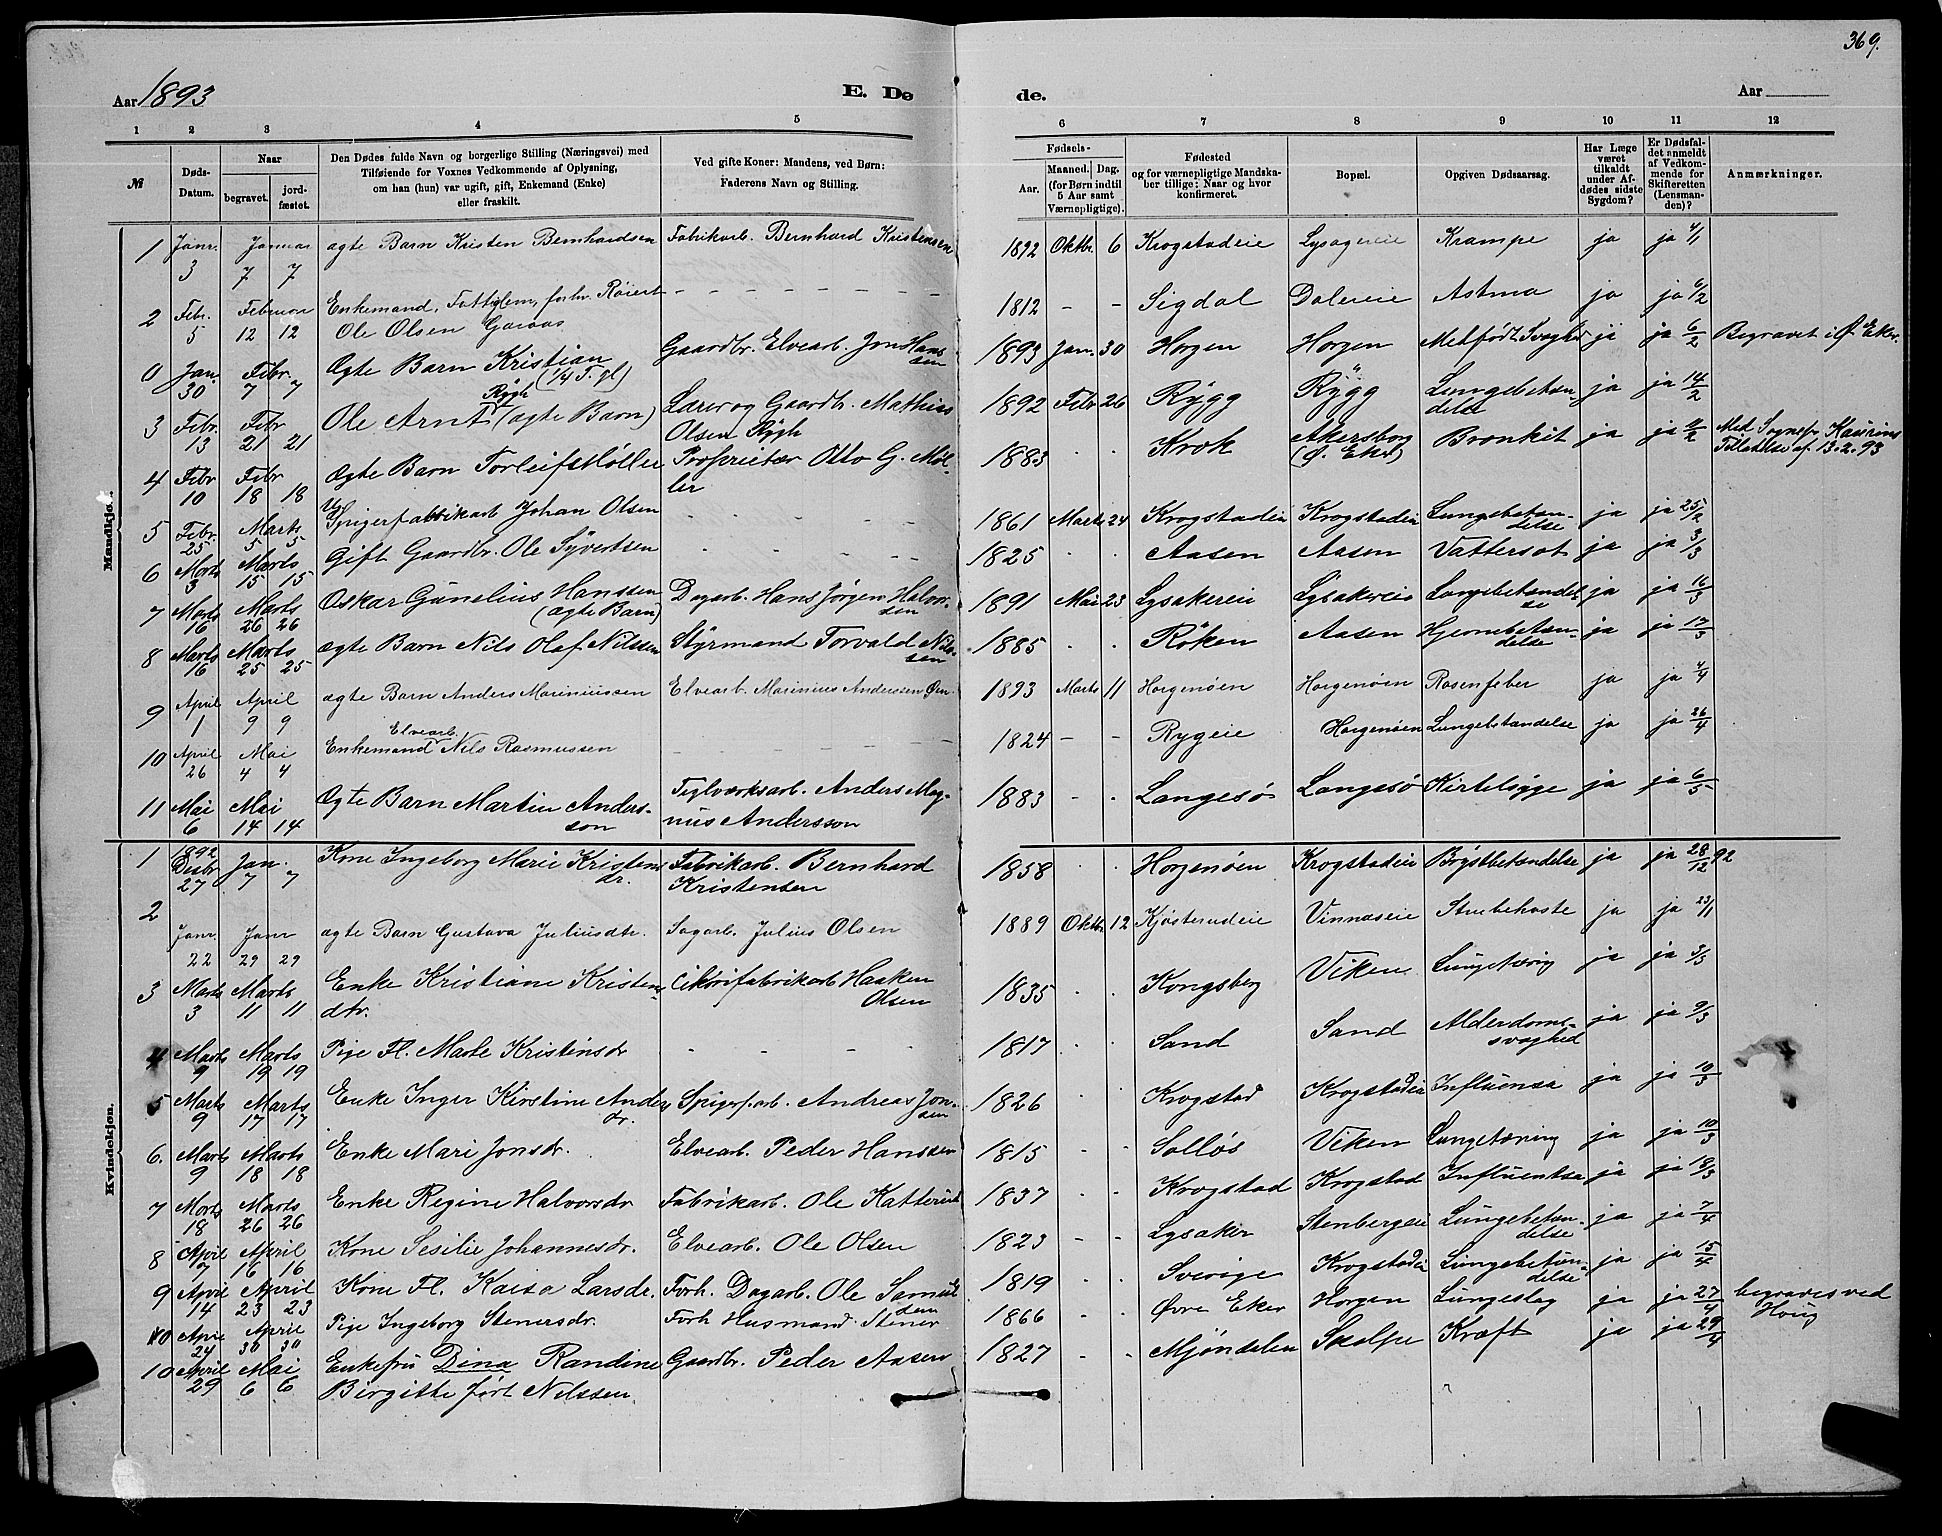 369.
Aar 1893
E. Dø
de.
Aar
1 2 3 4 5 6 7 8 9 10 11 12
№
Døds-Datum.
Naar
begravet.
jordfæstet.
Den Dødes fulde Navn og borgerlige Stilling (Næringsvei) med
Tilføiende for Voxnes Vedkommende af Oplysning,
om han (hun) var ugift, gift, Enkemand (Enke)
eller fraskilt.
Ved gifte Koner: Mandens, ved Børn:
Faderens Navn og Stilling.
Fødsels-
Aar.
Maaned. Dag.
(for Børn indtil
5 Aar samt
Værnepligtige).
Fødested
og for værnepligtige Mandskaber tillige: Naar og hvor
konfirmeret.
Bopæl.
Opgiven Dødsaarsag.
Har Læge
været
tilkaldt
under Afdødes sidste
Sygdom?
Er Dødsfaldet anmeldt
af Vedkommende for
Skifteretten
(Lensmanden)?
Anmærkninger.
Mandkjøn.
1 Janr. 3 Januar 7 7 ægte Barn Kristen Bernhardsen Fabrikarb. Bernhard Kristensen 1892 Oktbr. 6 Krogstadeie Lysagereie Krampe ja ja 4/1
2 Febr. 5 Februar 12 12 Enkemand, Fattiglem, forhv. Røiert
Ole Olsen Garaas 1812 - - Sigdal Dalereie Astma ja ja 6/2
0 Jan. 30 Febr. 7 7 Ægte Barn Kristian
(1/4 T. gl) Gaardbr. Elvearb. Jon Hanssen 1893 Jan. 30 Horgen Horgen Medfødt Svaghed ja ja 6/2 Begravet i Ø. Eker
3 Febr. 13 Febr 21 21 Ole Arnt Rygh (ægte Barn) Lærer og Gaardbr. Mathias
Olsen Rygh 1892 Febr 26 Rygg Rygg Lungebetændelse ja ja 14/2
4 Febr 10 Febr 18 18 Ægte Barn Torleif Møller Proprietær Otto G. Møller 1883 Krok Akersborg
(Ø. Eker) Bronkit ja ja 11/2 Med Sognepr. Kaurins
Tilladelse af 13.2.93
5 Febr. 25 Marts 5 5 Ug Spigerfabrikarb Johan Olsen 1861 Marts 24 Krogstadeie Krogstadeie Lungebetændelse ja ja 25/2
6 Marts 3 Marts 15 15 Gift Gaardbr. Ole Syvertsen 1825 Aasen Aasen Vattersot ja ja 3/3
7 Marts 16 Marts 26 26 Oskar Gunelius Hanssen
(ægte Barn) Dagarb. Hans Jørgen Halvorsen 1891 Mai 23 Lysakereie Lysakereie Lungebetændelse ja ja 16/3
8 Marts 16 Marts 25 25 ægte Barn Nils Olaf Nilssen Styrmand Torvald Nilssen 1885 Røken Aasen Hjernebetændelse ja ja 17/3
9 April 1 April 9 9 ægte Barn Anders Mariniussen Elvearb. Marinius Anderssen 1893 Marts 11 Horgenøen Horgenøen Rosenfeber ja ja 4/4
10 April 26 Mai 4 4 Enkemand Elvearb. Nils Rasmussen 1824 - - Rygeie Horgenøen Lungebetændelse ja ja 26/4
11 Mai 6 Mai 14 14 Ægte Barn Martin Andersson Teglværksarb. Anders Magnus Andersson 1883 - - Langesø Langesø Kirtelsyge ja ja 6/5
Kvindekjøn.
1 1892 Desbr 27 Jan. 7 7 Kone Ingeborg Marie Kristensdr. Fabrikarb. Bernhard
Kristensen 1858 Horgenøen Krogstadeie Brystbetændelse ja ja 28/12 92
2 Janr. 22 Janr 29 29 ægte Barn Gustava Juliusdtr. Sagarb. Julius Olsen 1889 Oktbr. 12 Kjøsterudeie Vinnæseie Strubehoste ja ja 23/1
3 Marts 3 Marts 11 11 Enke Kristiane Kristensdtr. Cikorifabrikarb Haaken
Olsen 1835 Kongsberg Viken Lungetæring ja ja 3/3
4 Marts 9 Marts 19 19 Pige Fl. Marte Kristinsdr 1817 Sand Sand Alderdomssvaghed ja ja 9/3
5 Marts 9 Marts 17 17 Enke Inger Kirstine Andersdr. Spigerf.arb. Andreas Jonsen 1826 Krogstad Krogstadeie Influensa ja ja 10/3
6. Marts 9 Marts 18 18 Enke Mari Jonsdr. Elvearb. Peder Hanssen 1815 Solløs Viken Lungetæring ja ja 10/3
7 Marts 18 Marts 26 26 Enke Regine Halvorsdr Fabrikarb. Ole Katterud 1837 Krogstad Krogstad Influentsa ja ja 18/3
8 April 7 April 16 16 Kone Sesilie Johannesdr. Elvearb. Ole Olsen 1823 - - Lysaker Stenbergeie Lungebetændelse ja ja 7/4
9 April 14 April 23 23 Kone Fl. Kaisa Larsdr. Forh. Dagarb. Ole Samuelsen 1819 Sverige Krogstadeie Lungebetændelse ja ja 15/4
10 April 24 April 30 30 Pige Ingeborg Stenersdr. Forh Husmand Stener 1866 Øvre Eker Horgen Lungeslag ja ja 27/4 begraves ved
Houg
10 April 29 Mai 6 6 Enkefru Dina Randine
Birgitte født Nilssen Gaardbr. Peder Aasen 1827 Mjøndalen Skalpe Kræft ja ja 29/4